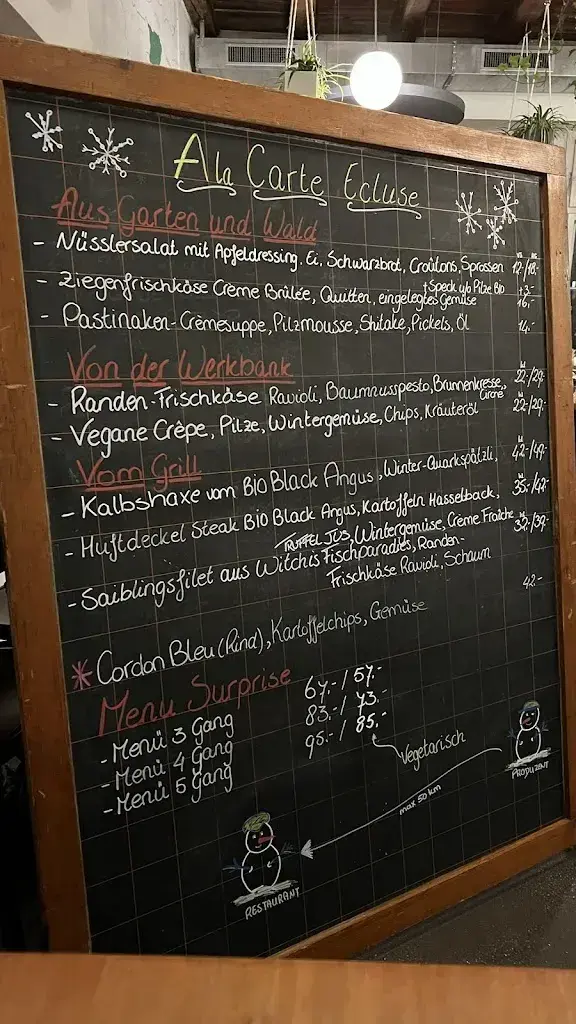 A la Carte Ecluse
Aus Garten und Wald
- Nüsslersalat mit Apfeldressing. Ei. Schwarzbrot, Croûtons, Sprossen 12.-/18.-
+ Speck u/o Pilze Bio +3.-
- Ziegenfrischkäse Crème Brûlée, Quitten, eingelegtes Gemüse 16.-
- Pastinaken-Crèmesuppe, Pilzmousse, Shitake, Pickels, Öl 14.-
Von der Werkbank
- Randen-Frischkäse Ravioli, Baumnusspesto, Brunnenkresse, 22.-/29.-
- Vegane Crêpe, Pilze, Wintergemüse, Chips, Kräuteröl 22.-/29.-
Vom Grill
- Kalbshaxe vom Bio Black Angus, Winter-Quarkspätzli, 42.-/49.-
- Huftdeckel Steak Bio Black Angus, Kartoffeln Hasselback, 35.-/42.-
TRÜFFEL JUS, Wintergemüse, Crème Fraîche
- Saiblingsfilet aus Witchis Fischparadies, Randen- 32.-/39.-
Frischkäse Ravioli, Schaum
* Cordon Bleu (Rind), Kartoffelchips, Gemüse 42.-
Menu Surprise
- Menü 3 Gang 67.-/57.-
- Menü 4 Gang 83.-/73.-
- Menü 5 Gang 95.-/85.-
Vegetarisch
PRODUZENT
max 50 km
RESTAURANT